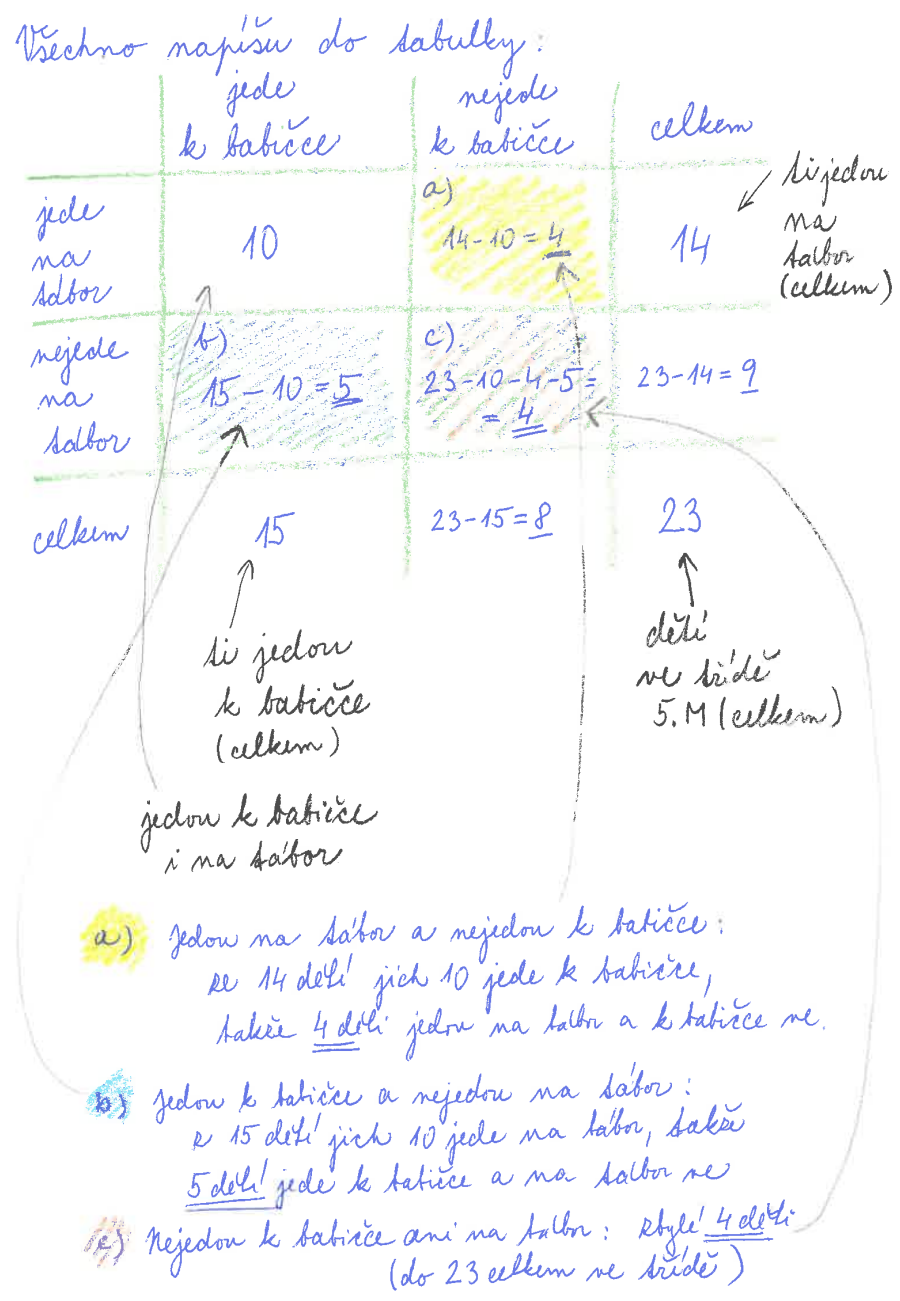 Všechno napíšu do tabulky:
jede
k babičce
nejede
k babičce
celkem
jede
na
tábor
10
a)
14-10=4
14
ti jedou
na
tábor
(celkem)
nejede
na
tábor
b)
15-10=5
c)
23-10-4-5=
=4
23-14=9
celkem
15
23-15=8
23
ti jedou
k babičce
(celkem)
děti
ve třídě
5.M (celkem)
jedou k babičce
i na tábor
a) Jedou na tábor a nejedou k babičce:
ze 14 dětí jich 10 jede k babičce,
takže 4 děti jedou na tábor a k babičce ne.
b) Jedou k babičce a nejedou na tábor:
z 15 dětí jich 10 jede na tábor, takže
5 dětí jede k babičce a na tábor ne
c) Nejedou k babičce ani na tábor: zbylé 4 děti
(do 23 celkem ve třídě)